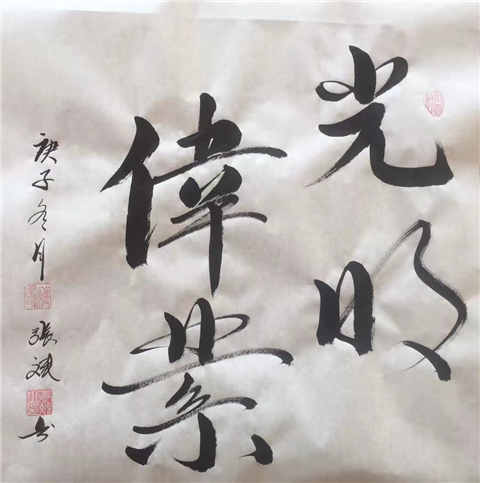 光明
偉業
庚子冬月 張斌 书